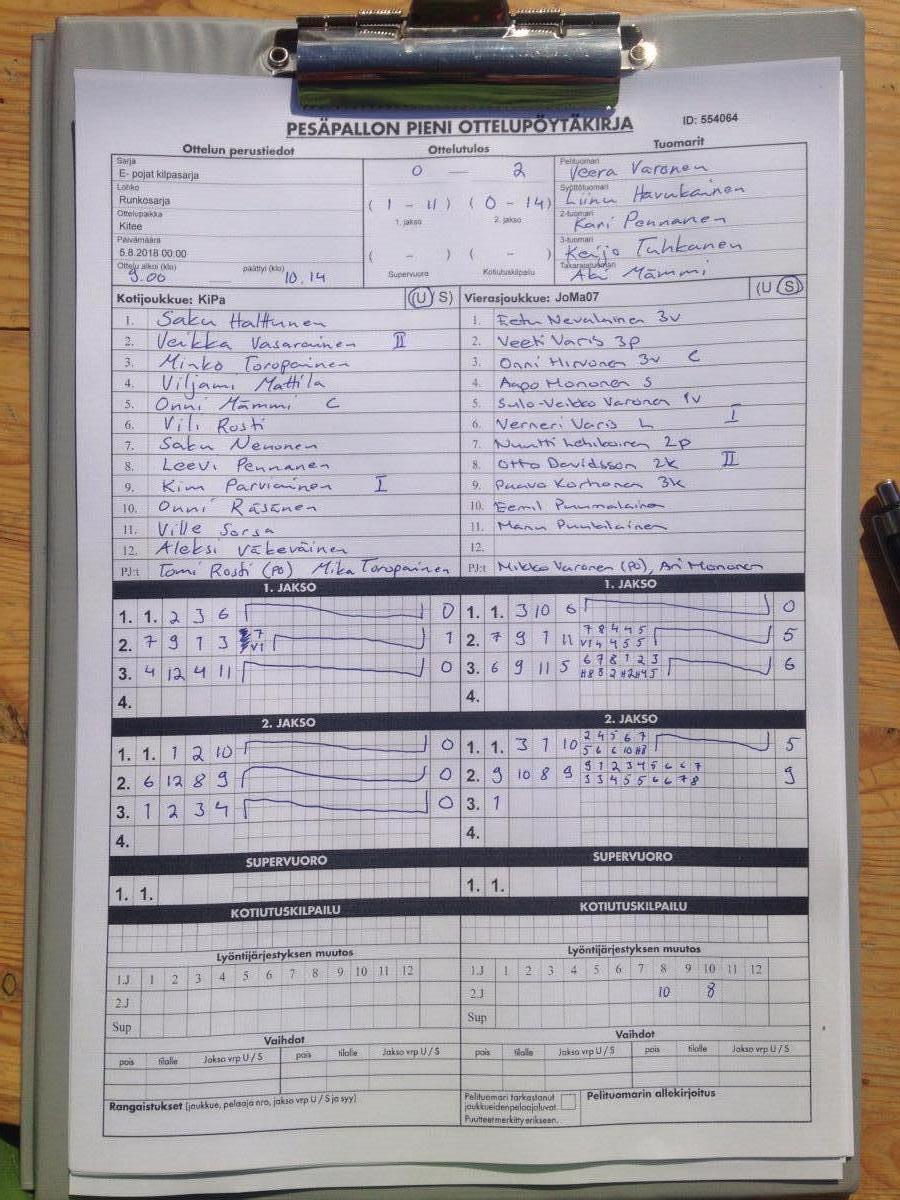 PESÄPALLON PIENI OTTELUPÖYTÄKIRJA ID: 554064
Ottelun perustiedot Ottelutulos Tuomarit
Sarja
E- pojat kilpasarja
Lohko
Runkosarja
Ottelupaikka
Kitee
Päivämäärä
5.8.2018 00:00
Ottelu alkoi (klo) 9.00 päättyi (klo) 10.14
0 — 2
( 1 - 11 ) ( 0 - 14 )
1. jakso 2. jakso
( - ) ( - )
Supervuoro Kotiutuskilpailu
Pelituomari Veera Varonen
Syöttötuomari Liinu Havukainen
2-tuomari Kari Pennanen
3-tuomari Keijo Tuhkanen
Takarajatuomari Aki Mämmi
Kotijoukkue: KiPa (U S)
1. Saku Halttunen
2. Veikka Vasarainen II
3. Minko Toropainen
4. Viljami Mattila
5. Onni Mämmi C
6. Vili Rosti
7. Saku Nenonen
8. Leevi Pennanen
9. Kim Parviainen I
10. Onni Räsänen
11. Ville Sorsa
12. Aleksi Väkeväinen
PJ:t Tomi Rosti (PO) Mika Toropainen
Vierasjoukkue: JoMa07 (U S)
1. Eetu Nevalainen 3v
2. Veeti Varis 3p
3. Onni Hirvonen 3v C
4. Aapo Mononen S
5. Sulo-Veikko Varonen 1v
6. Verneri Varis L I
7. Nuutti Lehikoinen 2p
8. Otto Davidsson 2k II
9. Paavo Korhonen 3k
10. Eemil Puumalainen
11. Manu Puukalainen
12.
PJ:t Mikko Varonen (PO), Ari Mononen
1. JAKSO
1. 1. 2 3 6 0
2. 7 9 1 3 7 1
V1
3. 4 12 4 11 0
4.
1. JAKSO
1. 1. 3 10 6 0
2. 7 9 1 11 7 8 4 4 5 5
V1 4 4 5 5
3. 6 9 11 5 6 7 8 1 2 3 6
4.
2. JAKSO
1. 1. 1 2 10 0
2. 6 12 8 9 0
3. 1 2 3 4 0
4.
2. JAKSO
1. 1. 3 7 10 2 4 5 6 7 5
5 6 6 10 #8
2. 9 10 8 9 9 1 2 3 4 5 6 6 7 9
3 3 4 5 5 6 6 7 8
3. 1
4.
SUPERVUORO
1. 1.
SUPERVUORO
1. 1.
KOTIUTUSKILPAILU
KOTIUTUSKILPAILU
Lyöntijärjestyksen muutos
1.J 1 2 3 4 5 6 7 8 9 10 11 12
2.J
Sup
Lyöntijärjestyksen muutos
1.J 1 2 3 4 5 6 7 8 9 10 11 12
2.J 10 8
Sup
Vaihdot
pois tilalle Jakso vrp U / S pois tilalle Jakso vrp U / S
Vaihdot
pois tilalle Jakso vrp U / S pois tilalle Jakso vrp U / S
Rangaistukset (joukkue, pelaaja nro, jakso vrp U / S ja syy)
Pelituomari tarkastanut
joukkueiden pelaajaluvat.
Puutteet merkitty erikseen.
Pelituomarin allekirjoitus